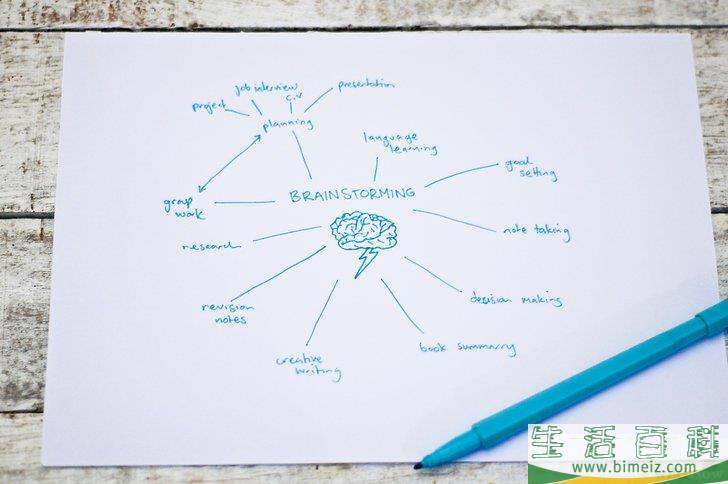 job interview
presentation
project
c.v
planning
language
learning
goal
setting
BRAINSTORMING
group
work
note taking
research
decision making
revision
notes
book summarry
creative
writing
生活百科
www.bimeiz.com